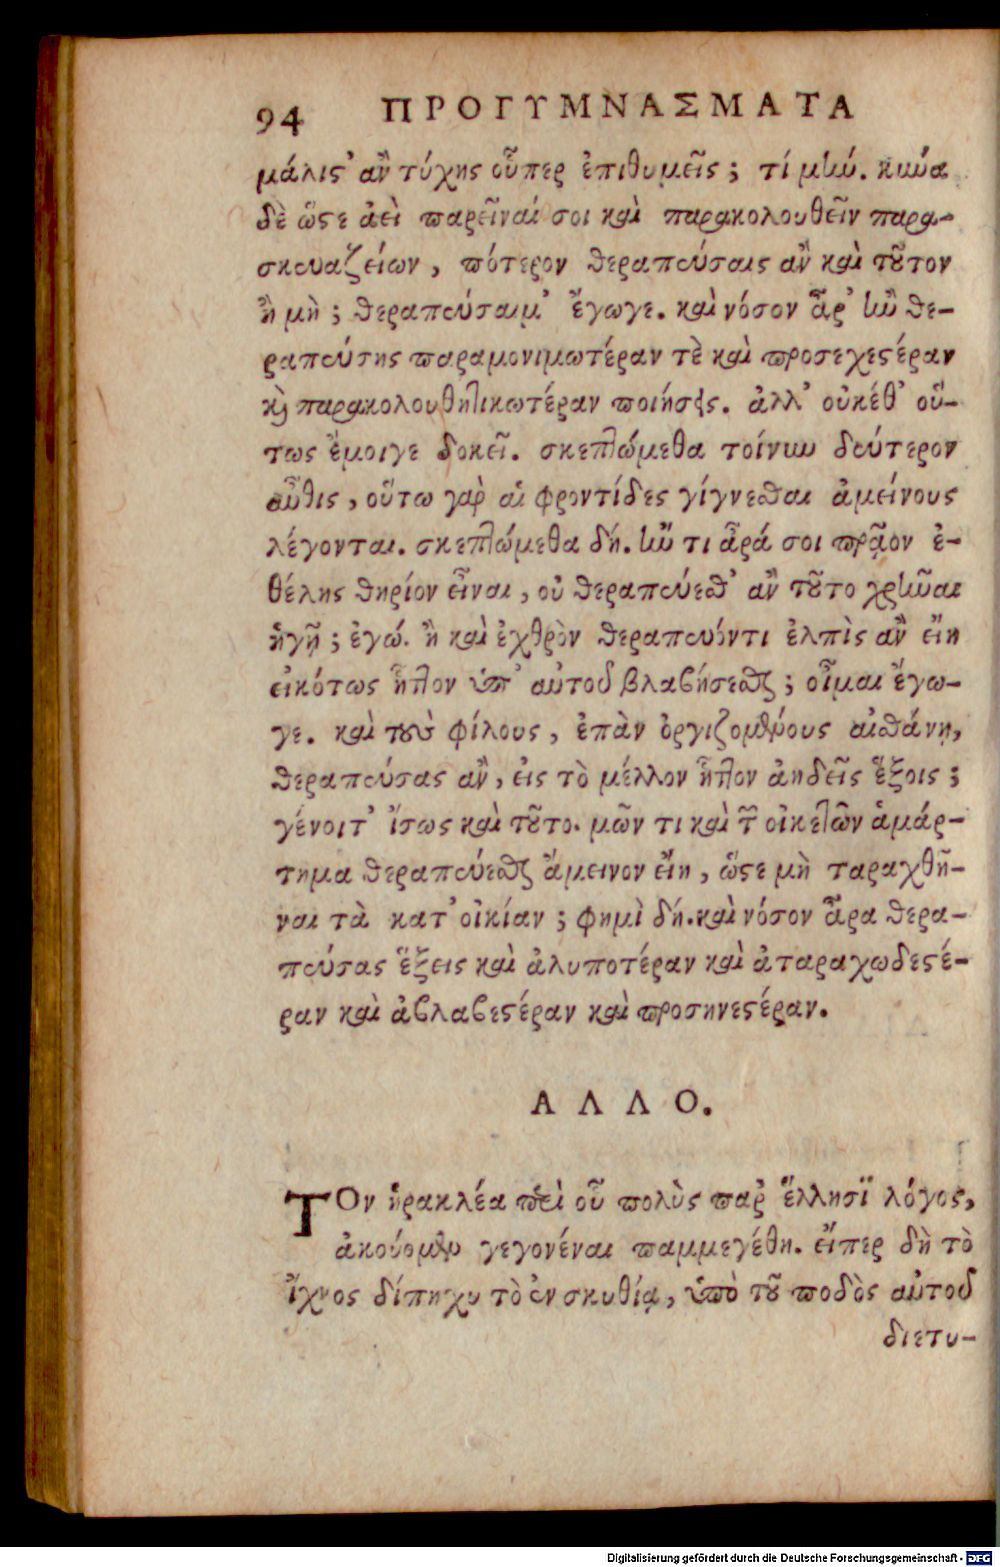 94 ΠΡΟΓΥΜΝΑΣΜΑΤΑ
μάλιϛ' ἂν τύχης οὗπερ ἐπιθυμεῖς; τί μήν. κύνα
δὲ ὥϛε ἀεὶ παρεῖναί σοι καὶ παρακολουθεῖν παρα-
σκευαζείων, πότερον θεραπεύσαις ἂν καὶ τοῦτον
ἢ μὴ; θεραπεύσαιμ' ἔγωγε. καὶ νόσον ἆρ' ἢν θε-
ραπεύσης παραμονιμωτέραν τὲ καὶ προσεχεϛέραν
καὶ παρακολουθητικωτέραν ποιήσεις. ἀλλ' οὐκέθ' οὕ-
τως ἔμοιγε δοκεῖ. σκεπτώμεθα τοίνυν δεύτερον
αὖθις, οὕτω γὰρ αἱ φροντίδες γίγνεσθαι ἀμείνους
λέγονται. σκεπτώμεθα δή. ἤν τι ἆρά σοι πρᾷον ἐ-
θέλης θηρίον εἶναι, οὐ θεραπεύεσθ' ἂν τοῦτο χρῆναι
ἡγῇ; ἐγώ. ἢ καὶ ἐχθρὸν θεραπεύοντι ἐλπὶς ἂν εἴη
εἰκότως ἧττον ὑπ' αὐτοῦ βλαβήσεσθαι; οἶμαι ἔγω-
γε. καὶ τοὺς φίλους, ἐπὰν ὀργιζομένους αἰσθάνῃ,
θεραπεύσας ἂν, εἰς τὸ μέλλον ἧττον ἀηδεῖς ἕξοις;
γένοιτ' ἴσως καὶ τοῦτο. μῶν τι καὶ τῶν οἰκετῶν ἁμάρ-
τημα θεραπεύεσθαι ἄμεινον εἴη, ὥϛε μὴ ταραχθῆ-
ναι τὰ κατ' οἰκίαν; φημὶ δή. καὶ νόσον ἆρα θερα-
πεύσας ἕξεις καὶ ἀλυποτέραν καὶ ἀταραχωδεϛέ-
ραν καὶ ἀβλαβεϛέραν καὶ προσηνεϛέραν.
ΑΛΛΟ.
ΤΟν ἡρακλέα περὶ οὗ πολὺς παρ' ἕλλησϊ λόγος,
ἀκούομεν γεγονέναι παμμεγέθη. εἴπερ δὴ τὸ
ἴχνος δίπηχυ τὸ ἐν σκυθίᾳ, ὑπὸ τοῦ ποδὸς αὐτοῦ
διετυ-
Digitalisierung gefördert durch die Deutsche Forschungsgemeinschaft - DFG